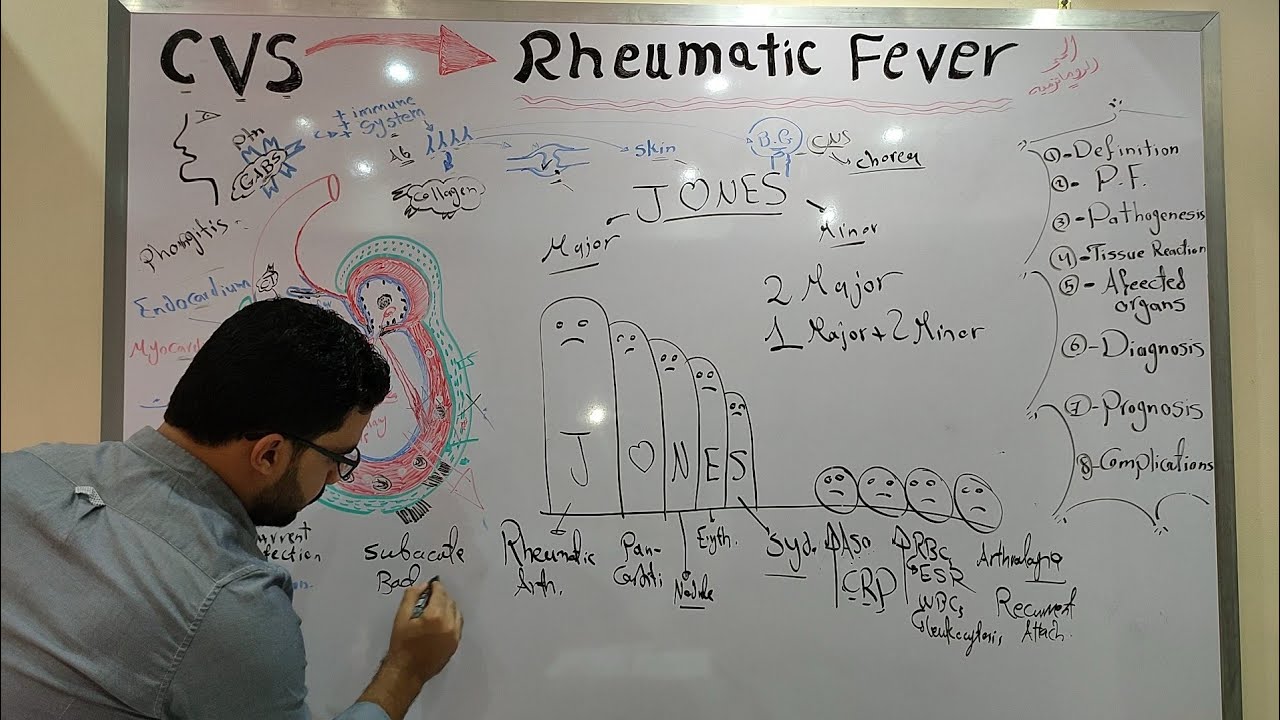 CVS
Rheumatic Fever
الحمى
الروماتزميه
immune
system
GABS
Ab
Collagen
skin
B.G
CNS
chorea
Endocardium
Myocard
JONES
Major
Minor
2 Major
1 Major + 2 Minor
J
N
E
S
①-Definition
②- P.F.
③-Pathogenesis
④-Tissue Reaction
⑤- Afeected
organs
⑥-Diagnosis
⑦-Prognosis
⑧-Complications
Subacute
Bad
Rheumatic
Arth.
Pan-
Nodule
Eryth.
Syd.
ASO
CRP
RBC
ESR
WBCs
Leukocytosis
Recurrent
Attach.